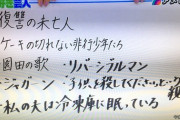 復讐の未亡人
ケーキの切れない非行少年たち
國田の歌 ・リバーシブルマン
ジャガーン ・「子供を殺してください」という親
・私の夫は冷凍庫に眠っている